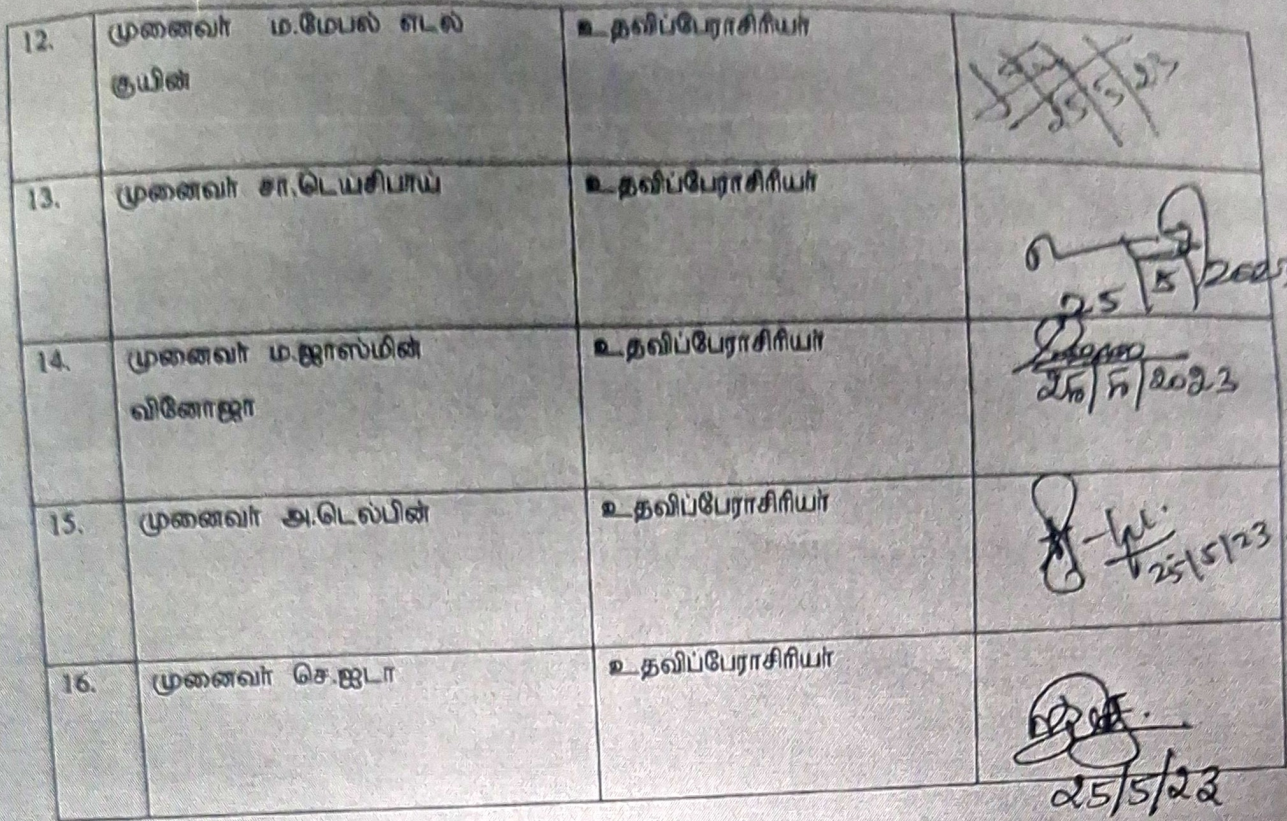 12. முனைவர் ம.மேபல் எடல் உதவிப்பேராசிரியர்
குயின்
25/5/23
13. முனைவர் சா.டெய்சிபாய் உதவிப்பேராசிரியர்
25/5/202
14. முனைவர் ம.ஜாஸ்மின் உதவிப்பேராசிரியர்
வினோஜா
25/5/2023
15. முனைவர் அ.டெல்பின் உதவிப்பேராசிரியர்
25/5/23
16. முனைவர் செ.ஐடா உதவிப்பேராசிரியர்
25/5/23